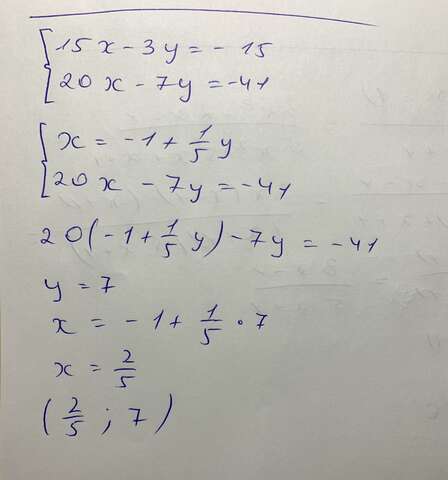 {15x - 3y = - 15
20x - 7y = -41
{x = -1 + 1/5 y
20x - 7y = -41
20(-1 + 1/5 y) - 7y = -41
y = 7
x = -1 + 1/5 · 7
x = 2/5
(2/5 ; 7)